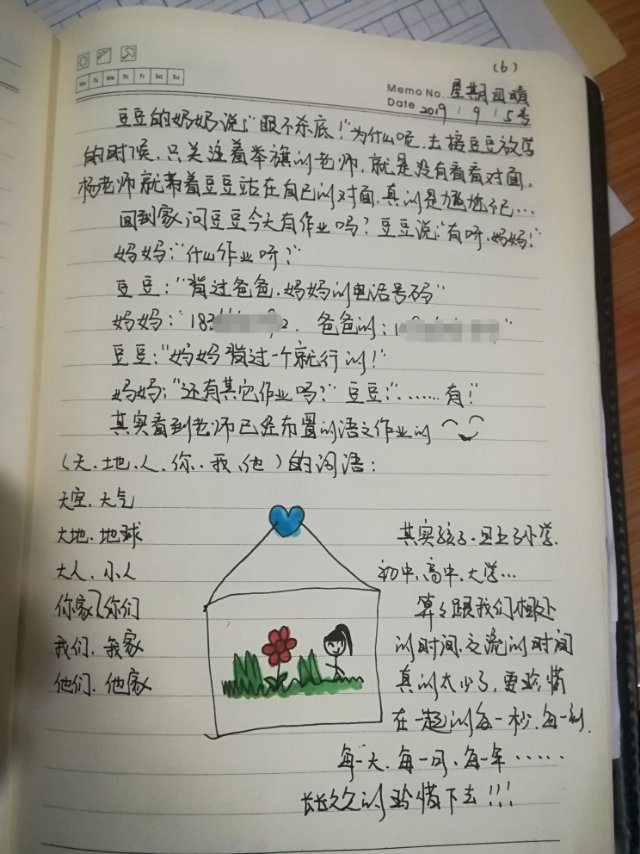 (6)
Mo Tu We Th Fr Sa Su
Memo No. 星期四晴
Date 2019 / 9 / 5号
豆豆的妈妈说:"眼不杀底!"为什么呢,去接豆豆放学
的时候,只关注着举旗的老师,就是没有看看对面,
杨老师就带着豆豆站在自己的对面,真的是尴尬纪...
回到家问豆豆今天有作业吗?豆豆说:"有呀,妈妈!"
妈妈:"什么作业呀?"
豆豆:"背过爸爸、妈妈的电话号码"
妈妈:"18 2,爸爸的:1 "
豆豆:"妈妈背过一个就行的!"
妈妈:"还有其它作业吗?"豆豆:"……有!"
其实看到老师已经布置的语文作业的
(天、地、人、你、我、他)的词语:
天空、天气
大地、地球
大人、小人
你家、你们
我们、我家
他们、他家
其实孩子,一旦上了小学、
初中、高中、大学...
算算跟我们相处
的时间、交流的时间
真的太少了,要珍惜
在一起的每一秒、每一刻、
每一天、每一月、每一年……
长长久久的珍惜下去!!!